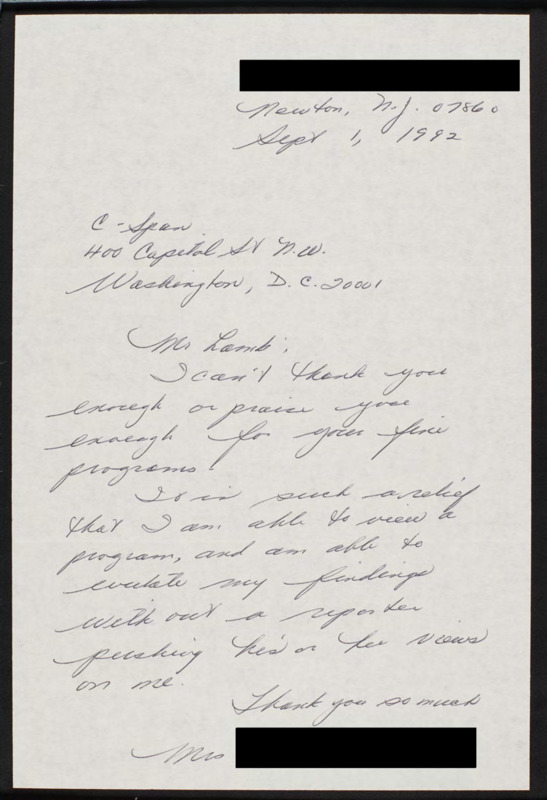 Newton, N.J. 07860
Sept 1, 1992
C-Span
400 Capitol St N.W.
Washington, D.C. 20001
Mr Lamb,
I can't thank you
enough or praise you
enough for your fine
programs.
It is such a relief
that I am able to view a
program, and am able to
evulate my findings
with out a reporter
pushing his or her views
on me.
Thank you so much
Mrs